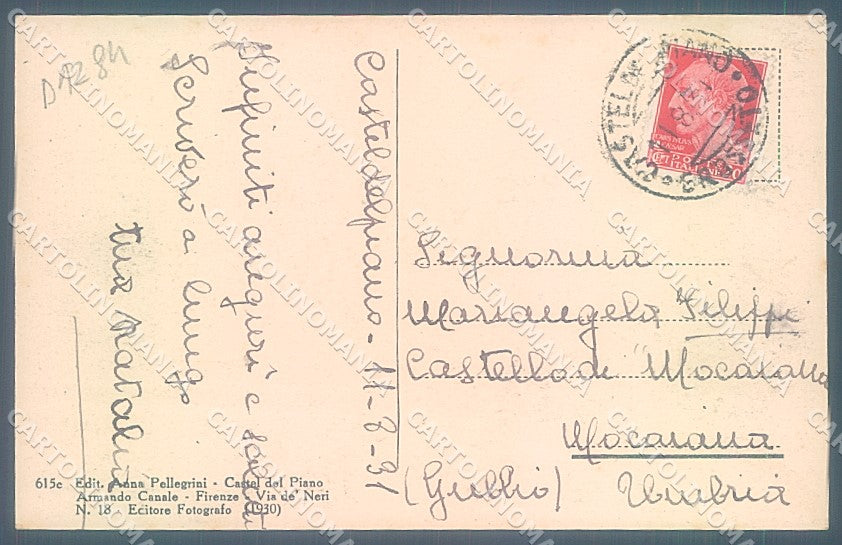 DAZ 84
Casteldelpiano - 11-8-31
Infiniti auguri e saluti
Scriverò a lungo
tua Natalia
Signorina
Mariangela Filippi
Castello di Mocaiana
Mocaiana
(Gubbio) Umbria
CASTEL DEL PIANO
615c Edit. Anna Pellegrini - Castel del Piano
Armando Canale - Firenze - Via de' Neri
N. 18 - Editore Fotografo (1930)
CARTOLINOMANIA